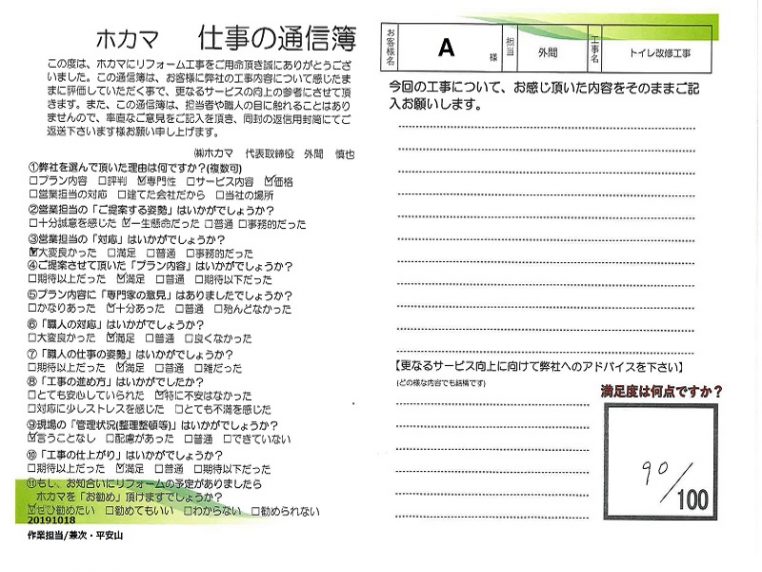 ホカマ 仕事の通信簿
この度は、ホカマにリフォーム工事をご用命頂き誠にありがとうござ
いました。この通信簿は、お客様に弊社の工事内容について感じたま
まに評価していただく事で、更なるサービスの向上の参考にさせて頂
きます。また、この通信簿は、担当者や職人の目に触れることはあり
ませんので、率直なご意見をご記入を頂き、同封の返信用封筒にてご
返送下さいます様お願い申し上げます。
㈱ホカマ 代表取締役 外間 慎也
①弊社を選んで頂いた理由は何ですか?(複数可)
□プラン内容 □評判 ☑専門性 □サービス内容 ☑価格
□営業担当の対応 □建てた会社だから □当社の場所
②営業担当の「ご提案する姿勢」はいかがでしょうか?
□十分誠意を感じた ☑一生懸命だった □普通 □事務的だった
③営業担当の「対応」はいかがでしょうか?
☑大変良かった □満足 □普通 □事務的だった
④ご提案させて頂いた「プラン内容」はいかがでしょうか?
□期待以上だった ☑満足 □普通 □期待以下だった
⑤プラン内容に「専門家の意見」はありましたでしょうか?
□かなりあった ☑十分あった □普通 □殆んどなかった
⑥「職人の対応」はいかがでしょうか?
□大変良かった ☑満足 □普通 □良くなかった
⑦「職人の仕事の姿勢」はいかがでしょうか?
□期待以上だった ☑満足 □普通 □雑だった
⑧「工事の進め方」はいかがでしたか?
□とても安心していられた ☑特に不安はなかった
□対応に少しストレスを感じた □とても不満を感じた
⑨現場の「管理状況(整理整頓等)」はいかがでしょうか?
☑言うことなし □配慮があった □普通 □できていない
⑩「工事の仕上がり」はいかがでしょうか?
□期待以上だった ☑満足 □普通 □期待以下だった
⑪もし、お知合いにリフォームの予定がありましたら
ホカマを「お勧め」頂けますでしょうか?
☑ぜひ勧めたい □勧めてもいい □わからない □勧められない
20191018
作業担当/兼次・平安山
お客様名 A 様 担当 外間 工事名 トイレ改修工事
今回の工事について、お感じ頂いた内容をそのままご記
入お願いします。
【更なるサービス向上に向けて弊社へのアドバイスを下さい】
(どの様な内容でも結構です)
満足度は何点ですか?
90/100